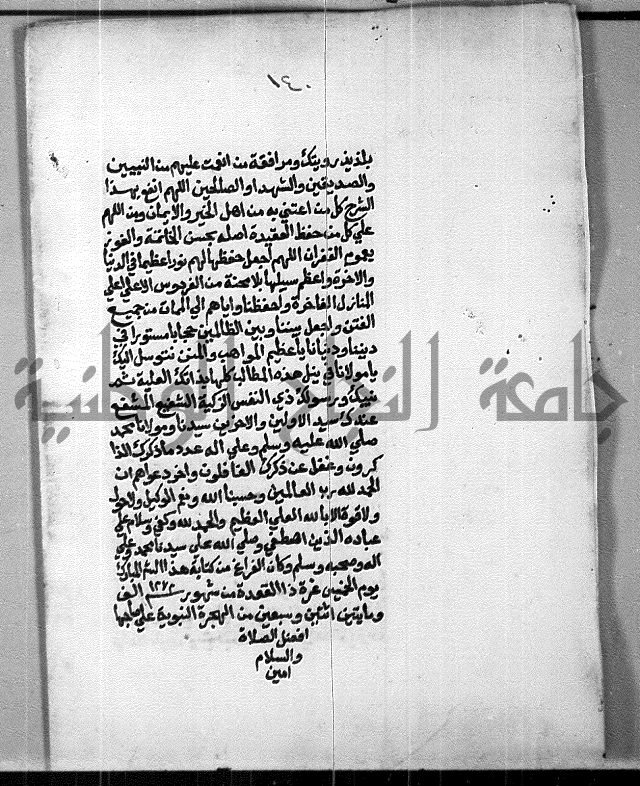 ٠٤١
بلذيذ رويتك ومرافقة من انعمت عليهم من النبيين
والصديقين والشهدا والصالحين اللهم انفع بهذا
الشرح كل من اعتني به من اهل الخير والايمان ومن اللهم
علي كل من حفظ العقيدة اصله بحسن الخاتمة والفوز
بعموم الغفران اللهم اجعل حفظها لهم نورا عظيما في الدنيا
والاخرة واعظم سبيلها بلا محنة من الفردوس الاعلي اعلي
المنازل الفاخرة واحفظنا واياهم الي الممات من جميع
الفتن واجعل بيننا وبين الظالمين حجابا مستورا في
ديننا ودنيانا يا عظيم المواهب والمنن نتوسل اليك
يا مولانا في نيل هذه المطالب كلها بذاتك العلية ثم
نبيك ورسولك ذي النفس الزكية الشفيع المشفع
عندك سيد الاولين والاخرين سيدنا ومولانا محمد
صلي الله عليه وسلم وعلي اله عدد ما ذكرك الذا
كرون وغفل عن ذكرك الغافلون واخر دعواهم ان
الحمد لله رب العالمين وحسبنا الله ونعم الوكيل ولا حول
ولا قوة الا بالله العلي العظيم والحمد لله وكفي وسلام علي
عباده الذين اصطفي وصلي الله علي سيدنا محمد وعلي
اله وصحبه وسلم وكان الفراغ من كتابة هذا الشرح المبارك
يوم الخميس غرة ذا القعدة من شهور ١٢٧٢ الف
ومايتين اثنين وسبعين من الهجرة النبوية علي صاحبها
افضل الصلاة
والسلام
امين
جامعة النجاح الوطنية